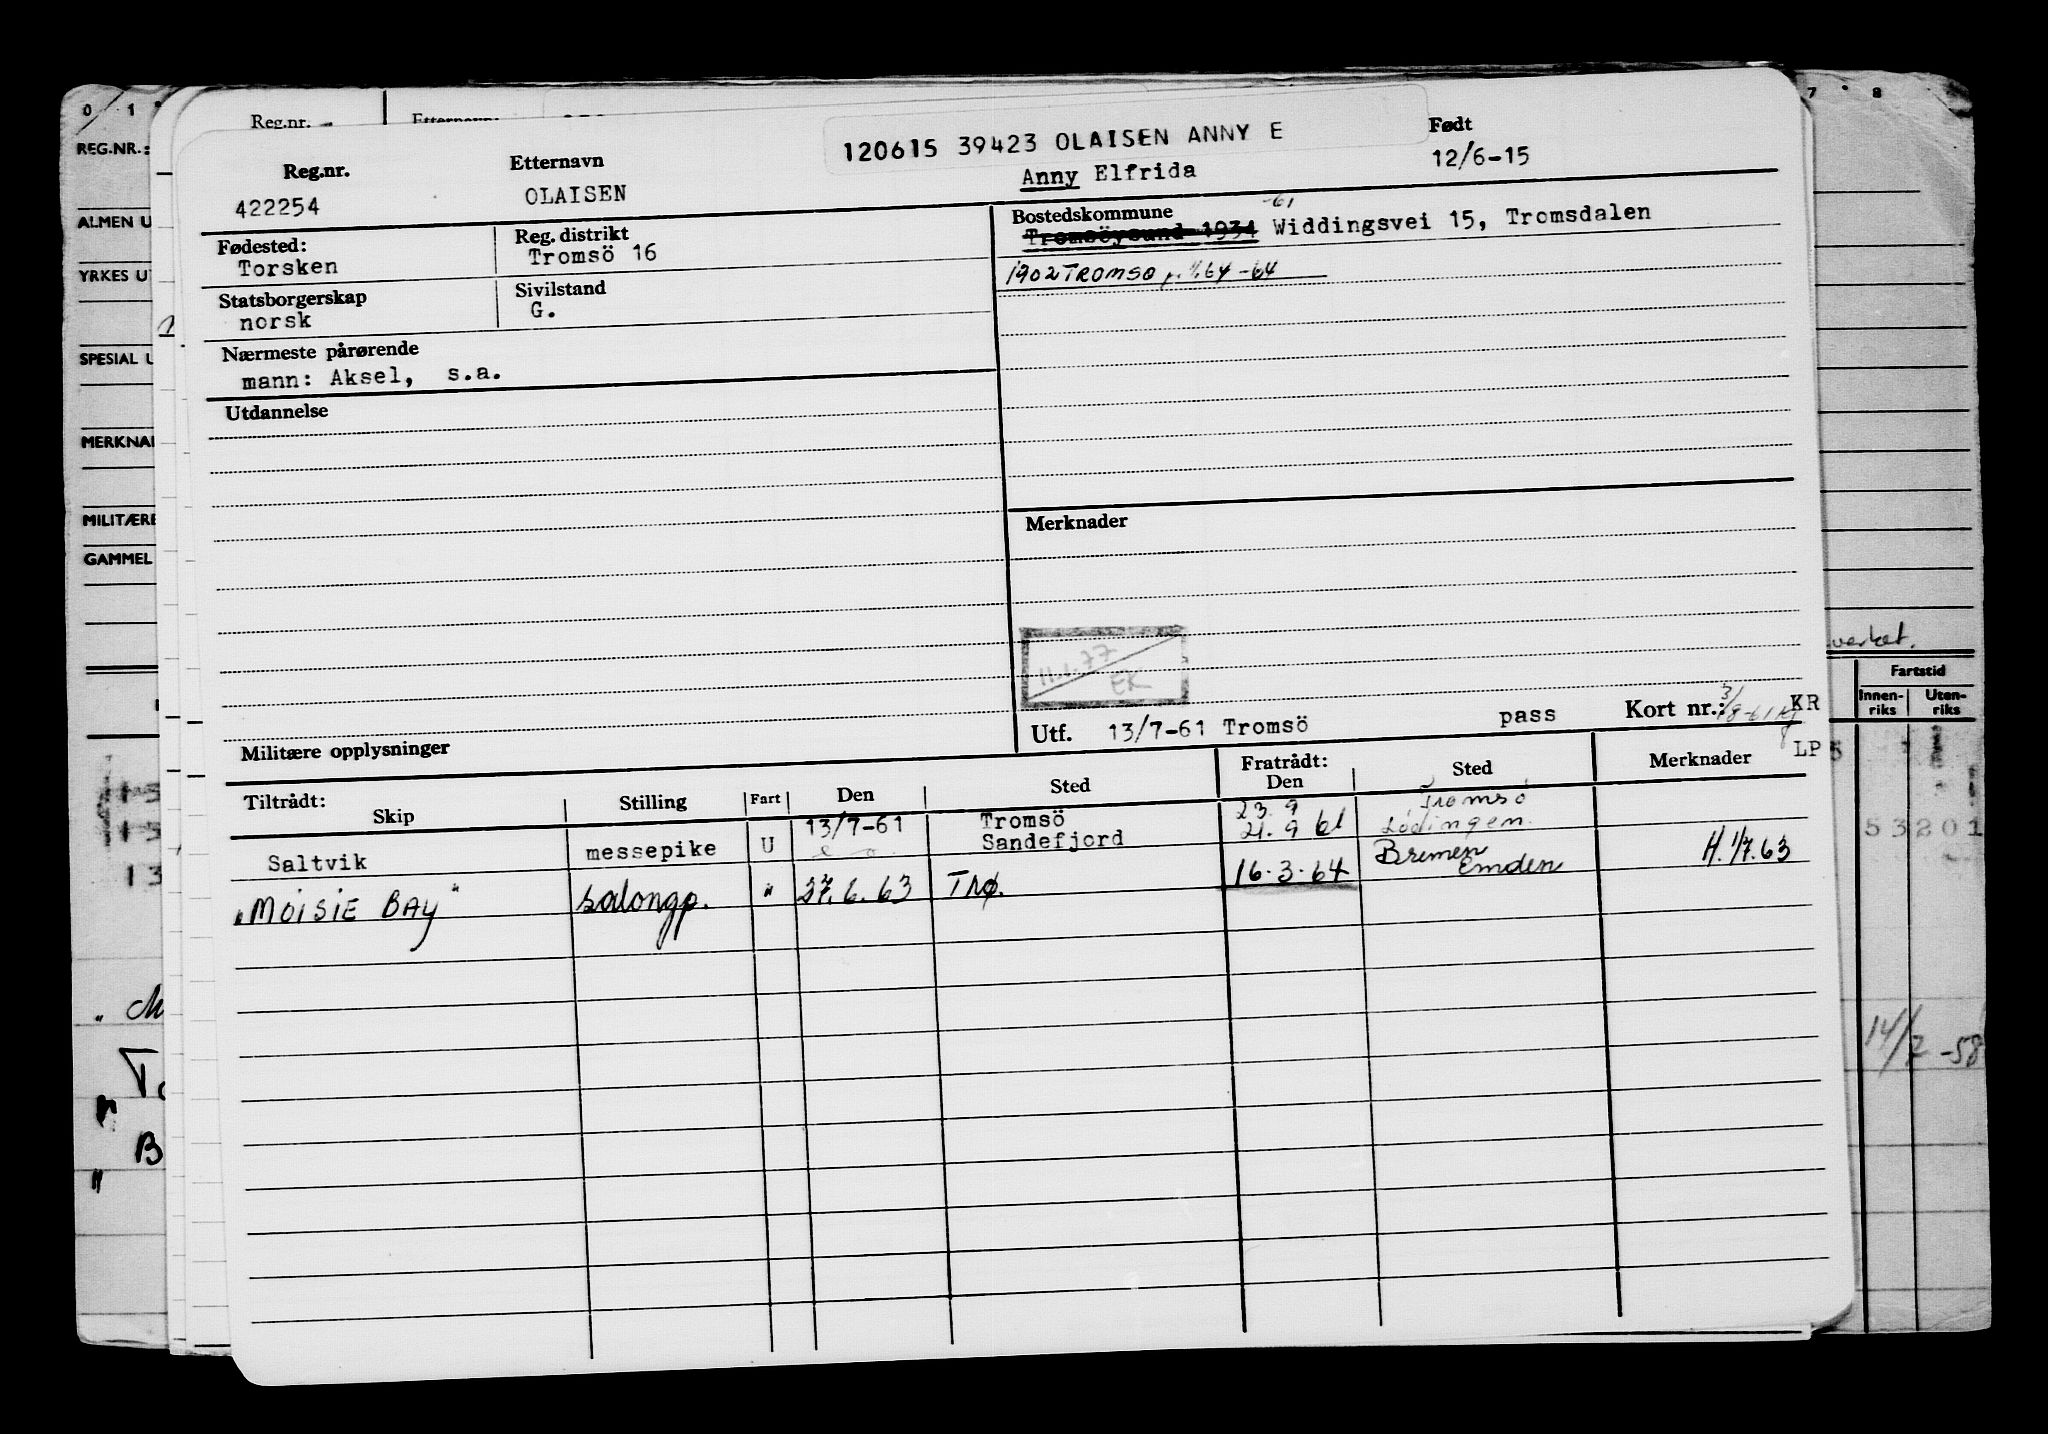 0 1 7 8
Reg.nr. Etternavn:
REG.NR.:
ALMEN U
YRKES UT
SPESIAL U
MERKNAD
MILITÆRE
GAMMEL
120615 39423 OLAISEN ANNY E
Reg.nr. Etternavn Født
422254 OLAISEN Anny Elfrida 12/6-15
Fødested: Reg. distrikt Bostedskommune -61
Torsken Tromsö 16 Tromsöysund 1934 Widdingsvei 15, Tromsdalen
1902 TROMSØ 64-64
Statsborgerskap Sivilstand
norsk G.
Nærmeste pårørende
mann: Aksel, s.a.
Utdannelse
Merknader
11.1.77
EK
Utf. 13/7-61 Tromsö pass Kort nr.: KR
Militære opplysninger
LP
verket.
Fartstid
Innen-riks Uten-riks
Tiltrådt: Fratrådt:
Skip Stilling Fart Den Sted Den Sted Merknader
Saltvik messepike U 13/7-61 Tromsö 23.9 Tromsö
Sandefjord 21.9 61 Lödingen.
"MOISIE BAY" salongp. " 27.6.63 Trø. 16.3.64 Bremen H.1/7.63
Emden
53201
14/2-58